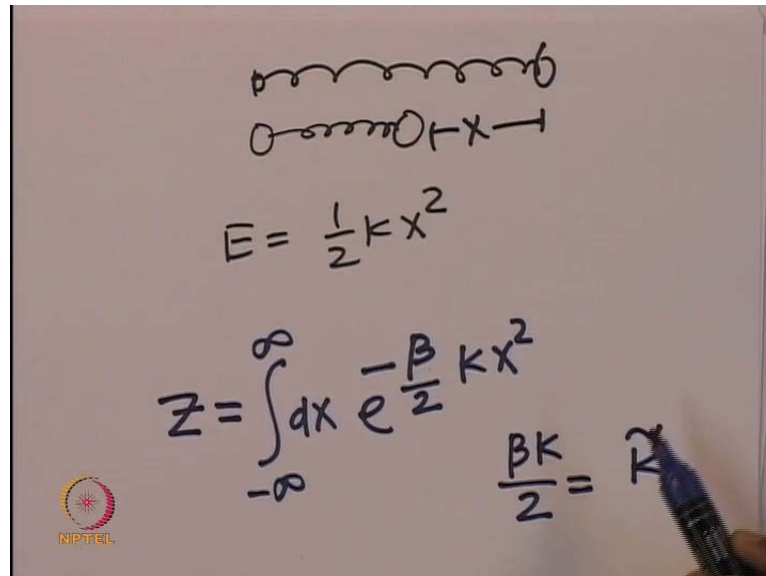 x
E = 1/2 K x²
Z = ∫_{-∞}^{∞} dx e^{-β/2 K x²}
βK/2 = K̃
NPTEL